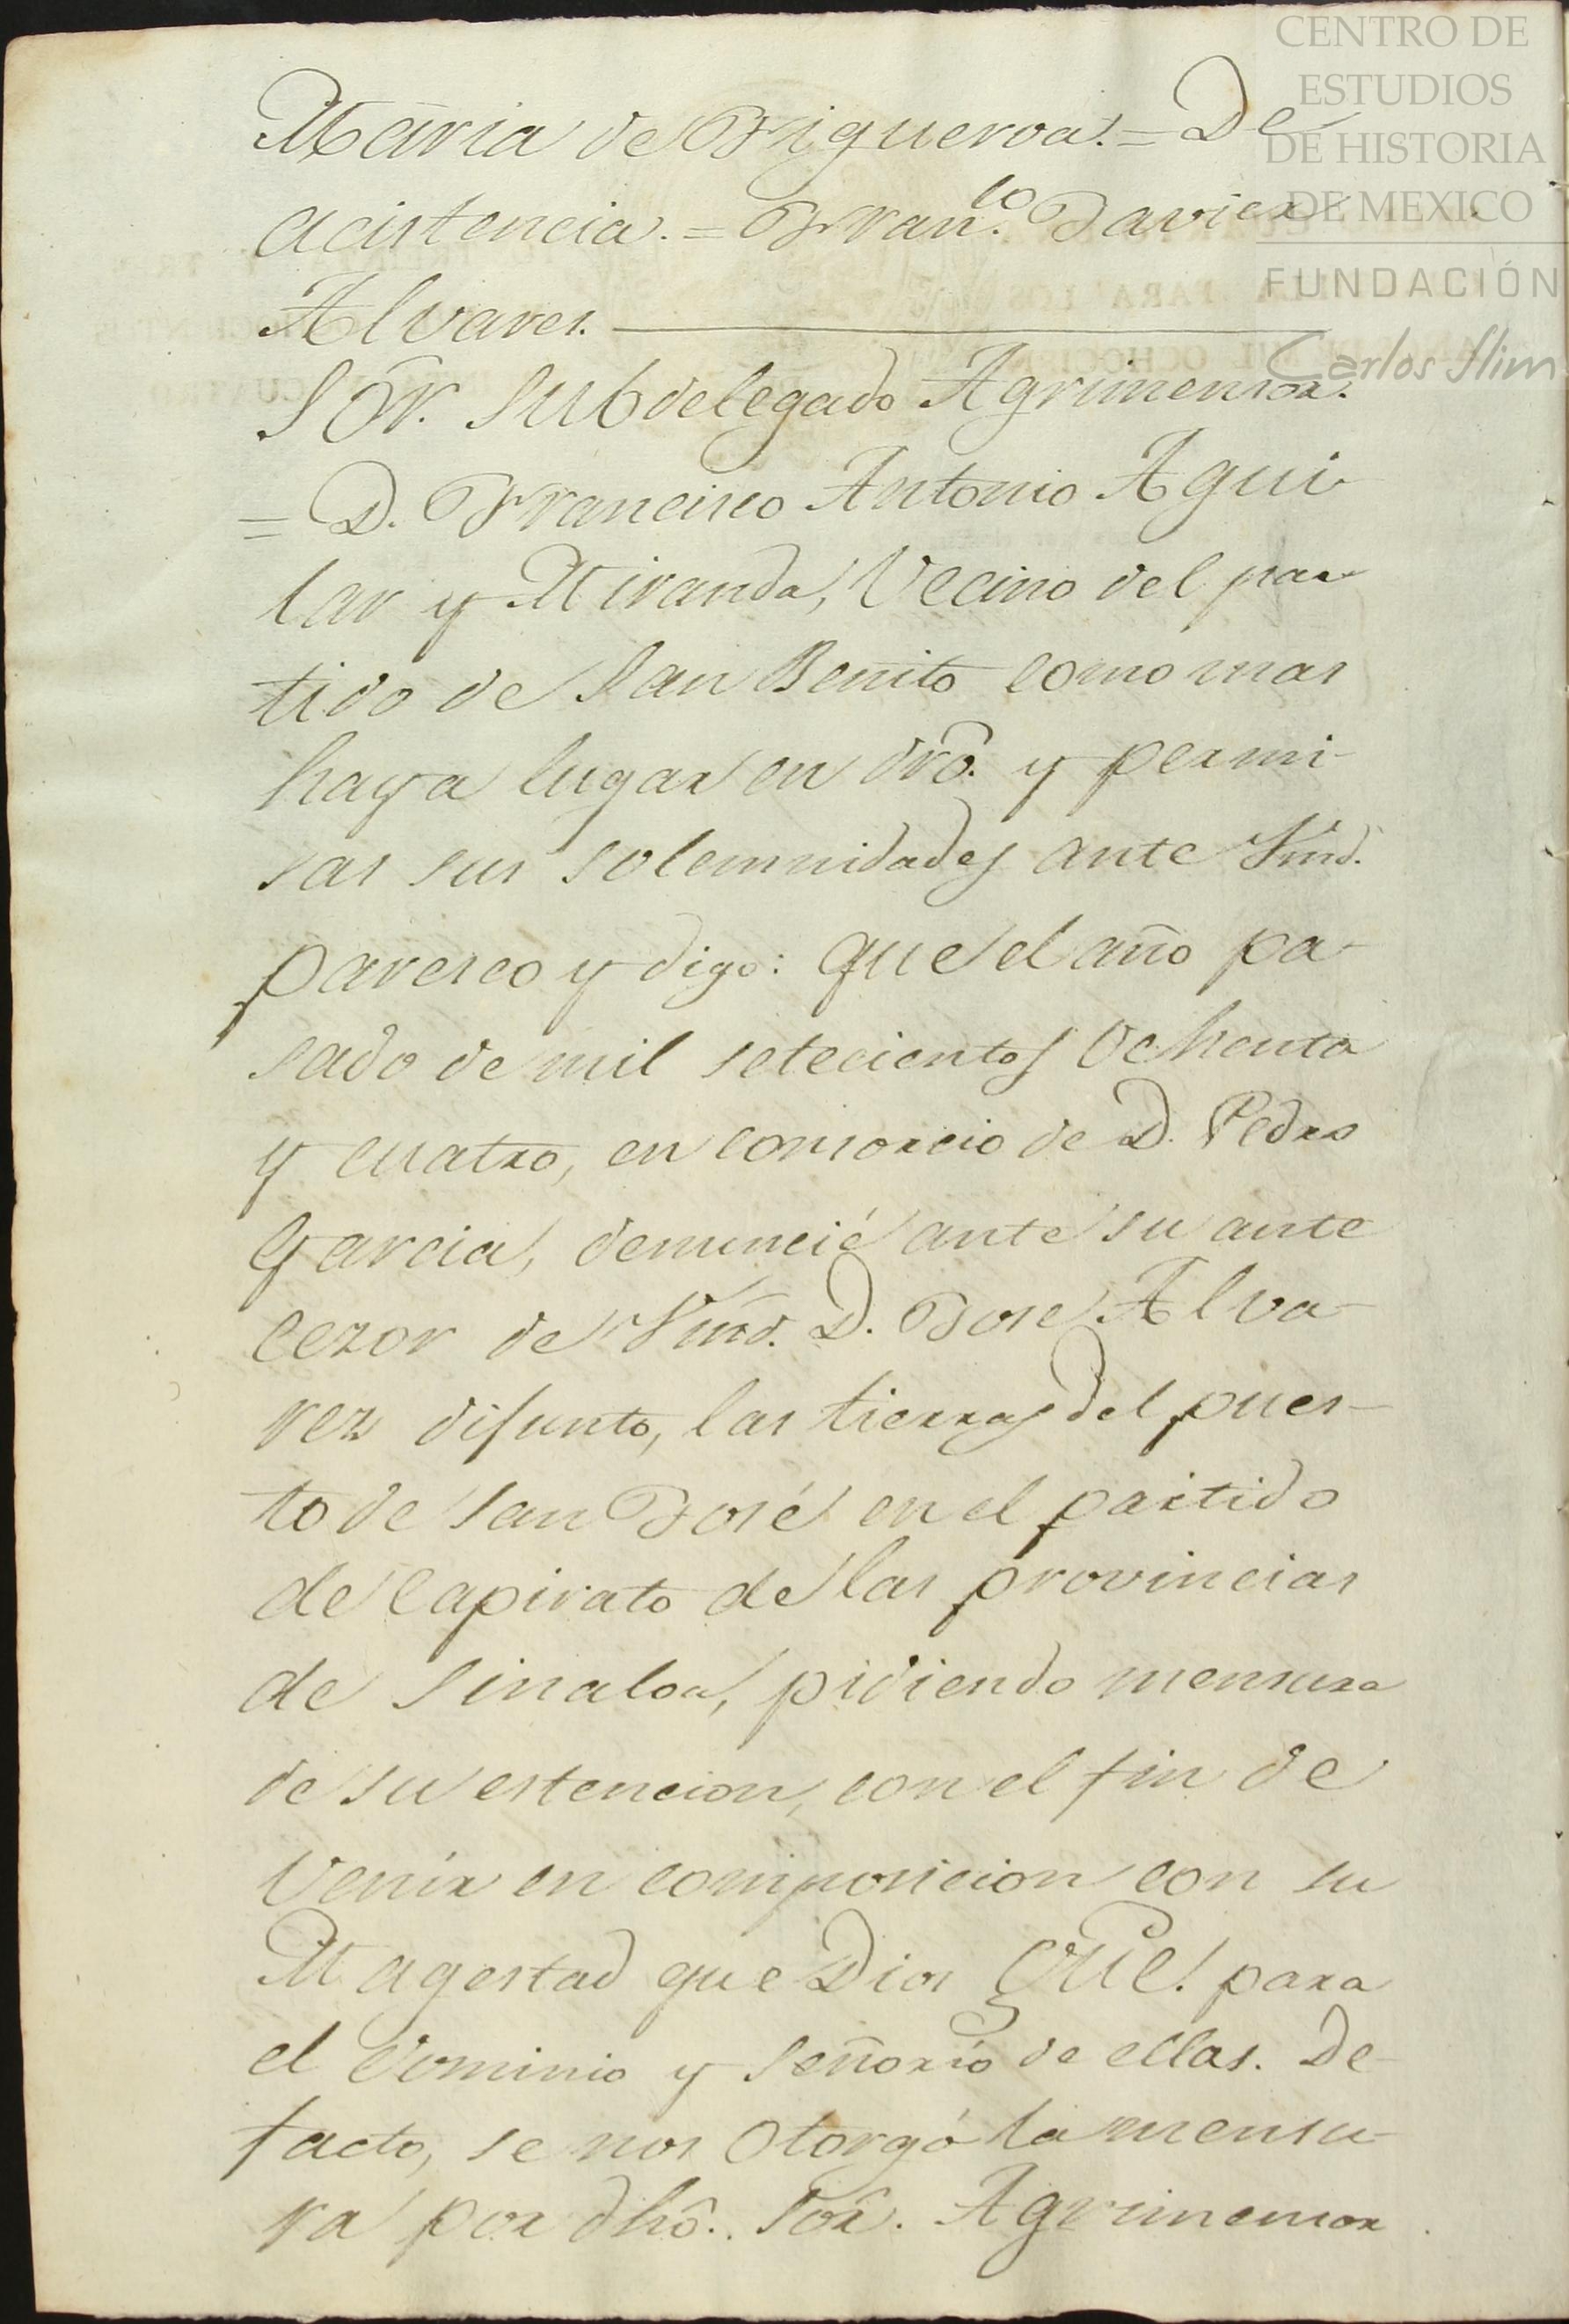 Maria de Figueroa. = De
acistencia. = Fran.co Javier
Alvares.
Sõr. Subdelegado Agrimensor.
= D. Francisco Antonio Agui
lar y Miranda, Vecino del par
tido de San Benito como mas
haya lugar en dro. y permi-
sas sus solemnidades ante Vmd.
paresco y digo: que el año pa-
sado de mil setecientos ochenta
y cuatro, en consorcio de D. Pedro
Garcia, denuncié ante su ante
cezor de Vmd. D. Jose Alva-
rez difunto, las tierras del puer-
to de San José en el partido
de Capirato de las provincias
de Sinaloa, pidiendo mensura
de su estencion, con el fin de
Venir en composicion con su
Magestad que Dios gue. para
el dominio y señorío de ellas. De
facto, se nos otorgó la mensu-
ra por dhô. Sor. Agrimensor
CENTRO DE
ESTUDIOS
DE HISTORIA
DE MEXICO
FUNDACIÓN
Carlos Slim